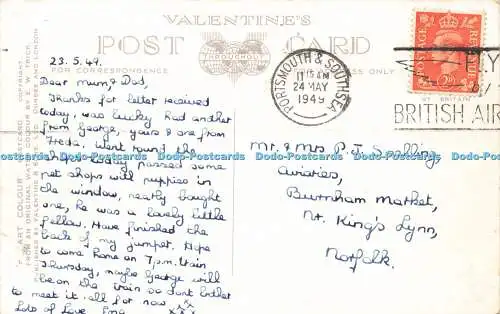 VALENTINE'S
POST CARD
THROUGHOUT
FOR CORRESPONDENCE
ONLY
23.5.49.
Dear Mum, & Dad,
Thanks for letter received
today, was lucky had another
from George, yours & one from
Freda. Went round the
shops today passed some
pet shops with puppies in
the window, nearly bought
one, he was a lovely little
fellow. Have finished the
back of my jumper. Hope
to come home on 7p.m. train
Thursday, maybe George will
be on the train so don't bother
to meet it. All for now
Lots of Love
xxx
PORTSMOUTH & SOUTHSEA
11 15 AM
24 MAY
1949
BRITISH AIR
POSTAGE
REVENUE
Mr. & Mrs P. J.
Aviaries,
Burnham Market,
Nr. King's Lynn,
Norfolk.
"ART COLOUR" POSTCARD
Dodo-Postcards Dodo-Postcards Dodo-Postcards Dodo-Postcards Dodo-Postcards